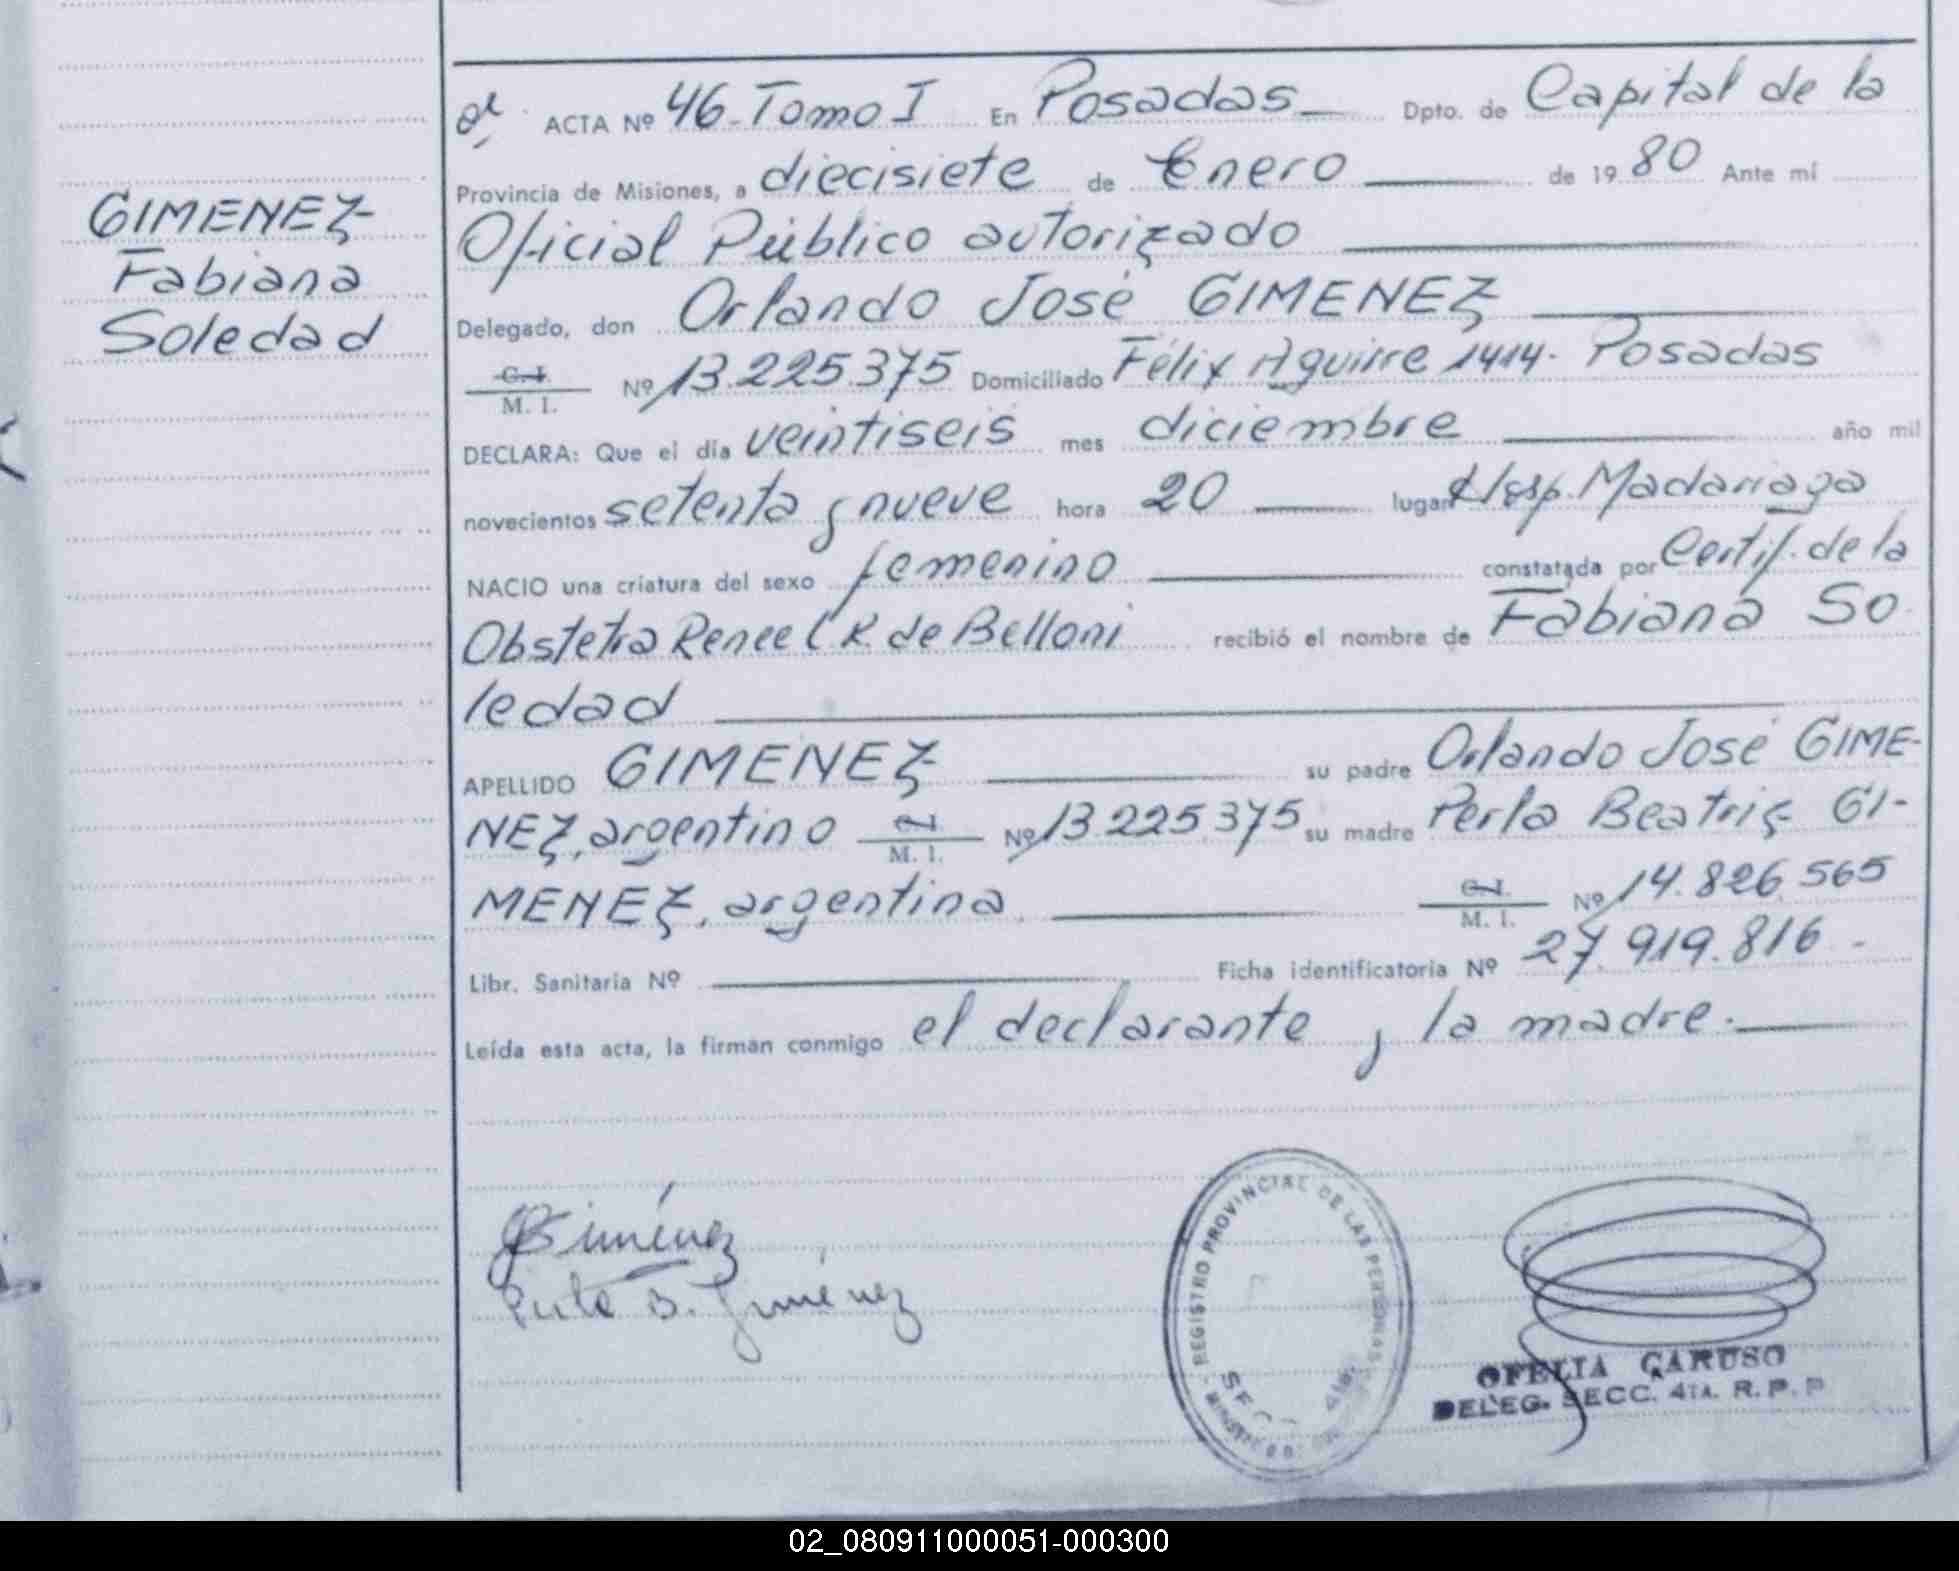 GIMENEZ
Fabiana
Soledad
ACTA Nº 46-Tomo I En Posadas Dpto. de Capital de la
Provincia de Misiones, a diecisiete de Enero de 1980 Ante mí
Oficial Público autorizado
Delegado, don Orlando José GIMENEZ
C.I.
M. I. Nº 13.225.375 Domiciliado Félix Aguirre 1414. Posadas
DECLARA: Que el día veintiseis mes diciembre año mil
novecientos setenta y nueve hora 20 lugar Hosp. Madariaga
NACIO una criatura del sexo femenino constatada por Certif. de la
Obstetra Renee R. de Belloni recibió el nombre de Fabiana So
ledad
APELLIDO GIMENEZ su padre Orlando José GIME-
NEZ, argentino C.I. M. I. Nº 13.225.375 su madre Perla Beatriz GI-
MENEZ, argentina C.I. M. I. Nº 14.826.565
Libr. Sanitaria Nº Ficha identificatoria Nº 27.919.816.-
Leída esta acta, la firman conmigo el declarante y la madre.
Giménez
B. Giménez
REGISTRO PROVINCIAL DE LAS PERSONAS
OFELIA CARUSO
DELEG. SECC. 4TA. R. P. P
02_080911000051-000300